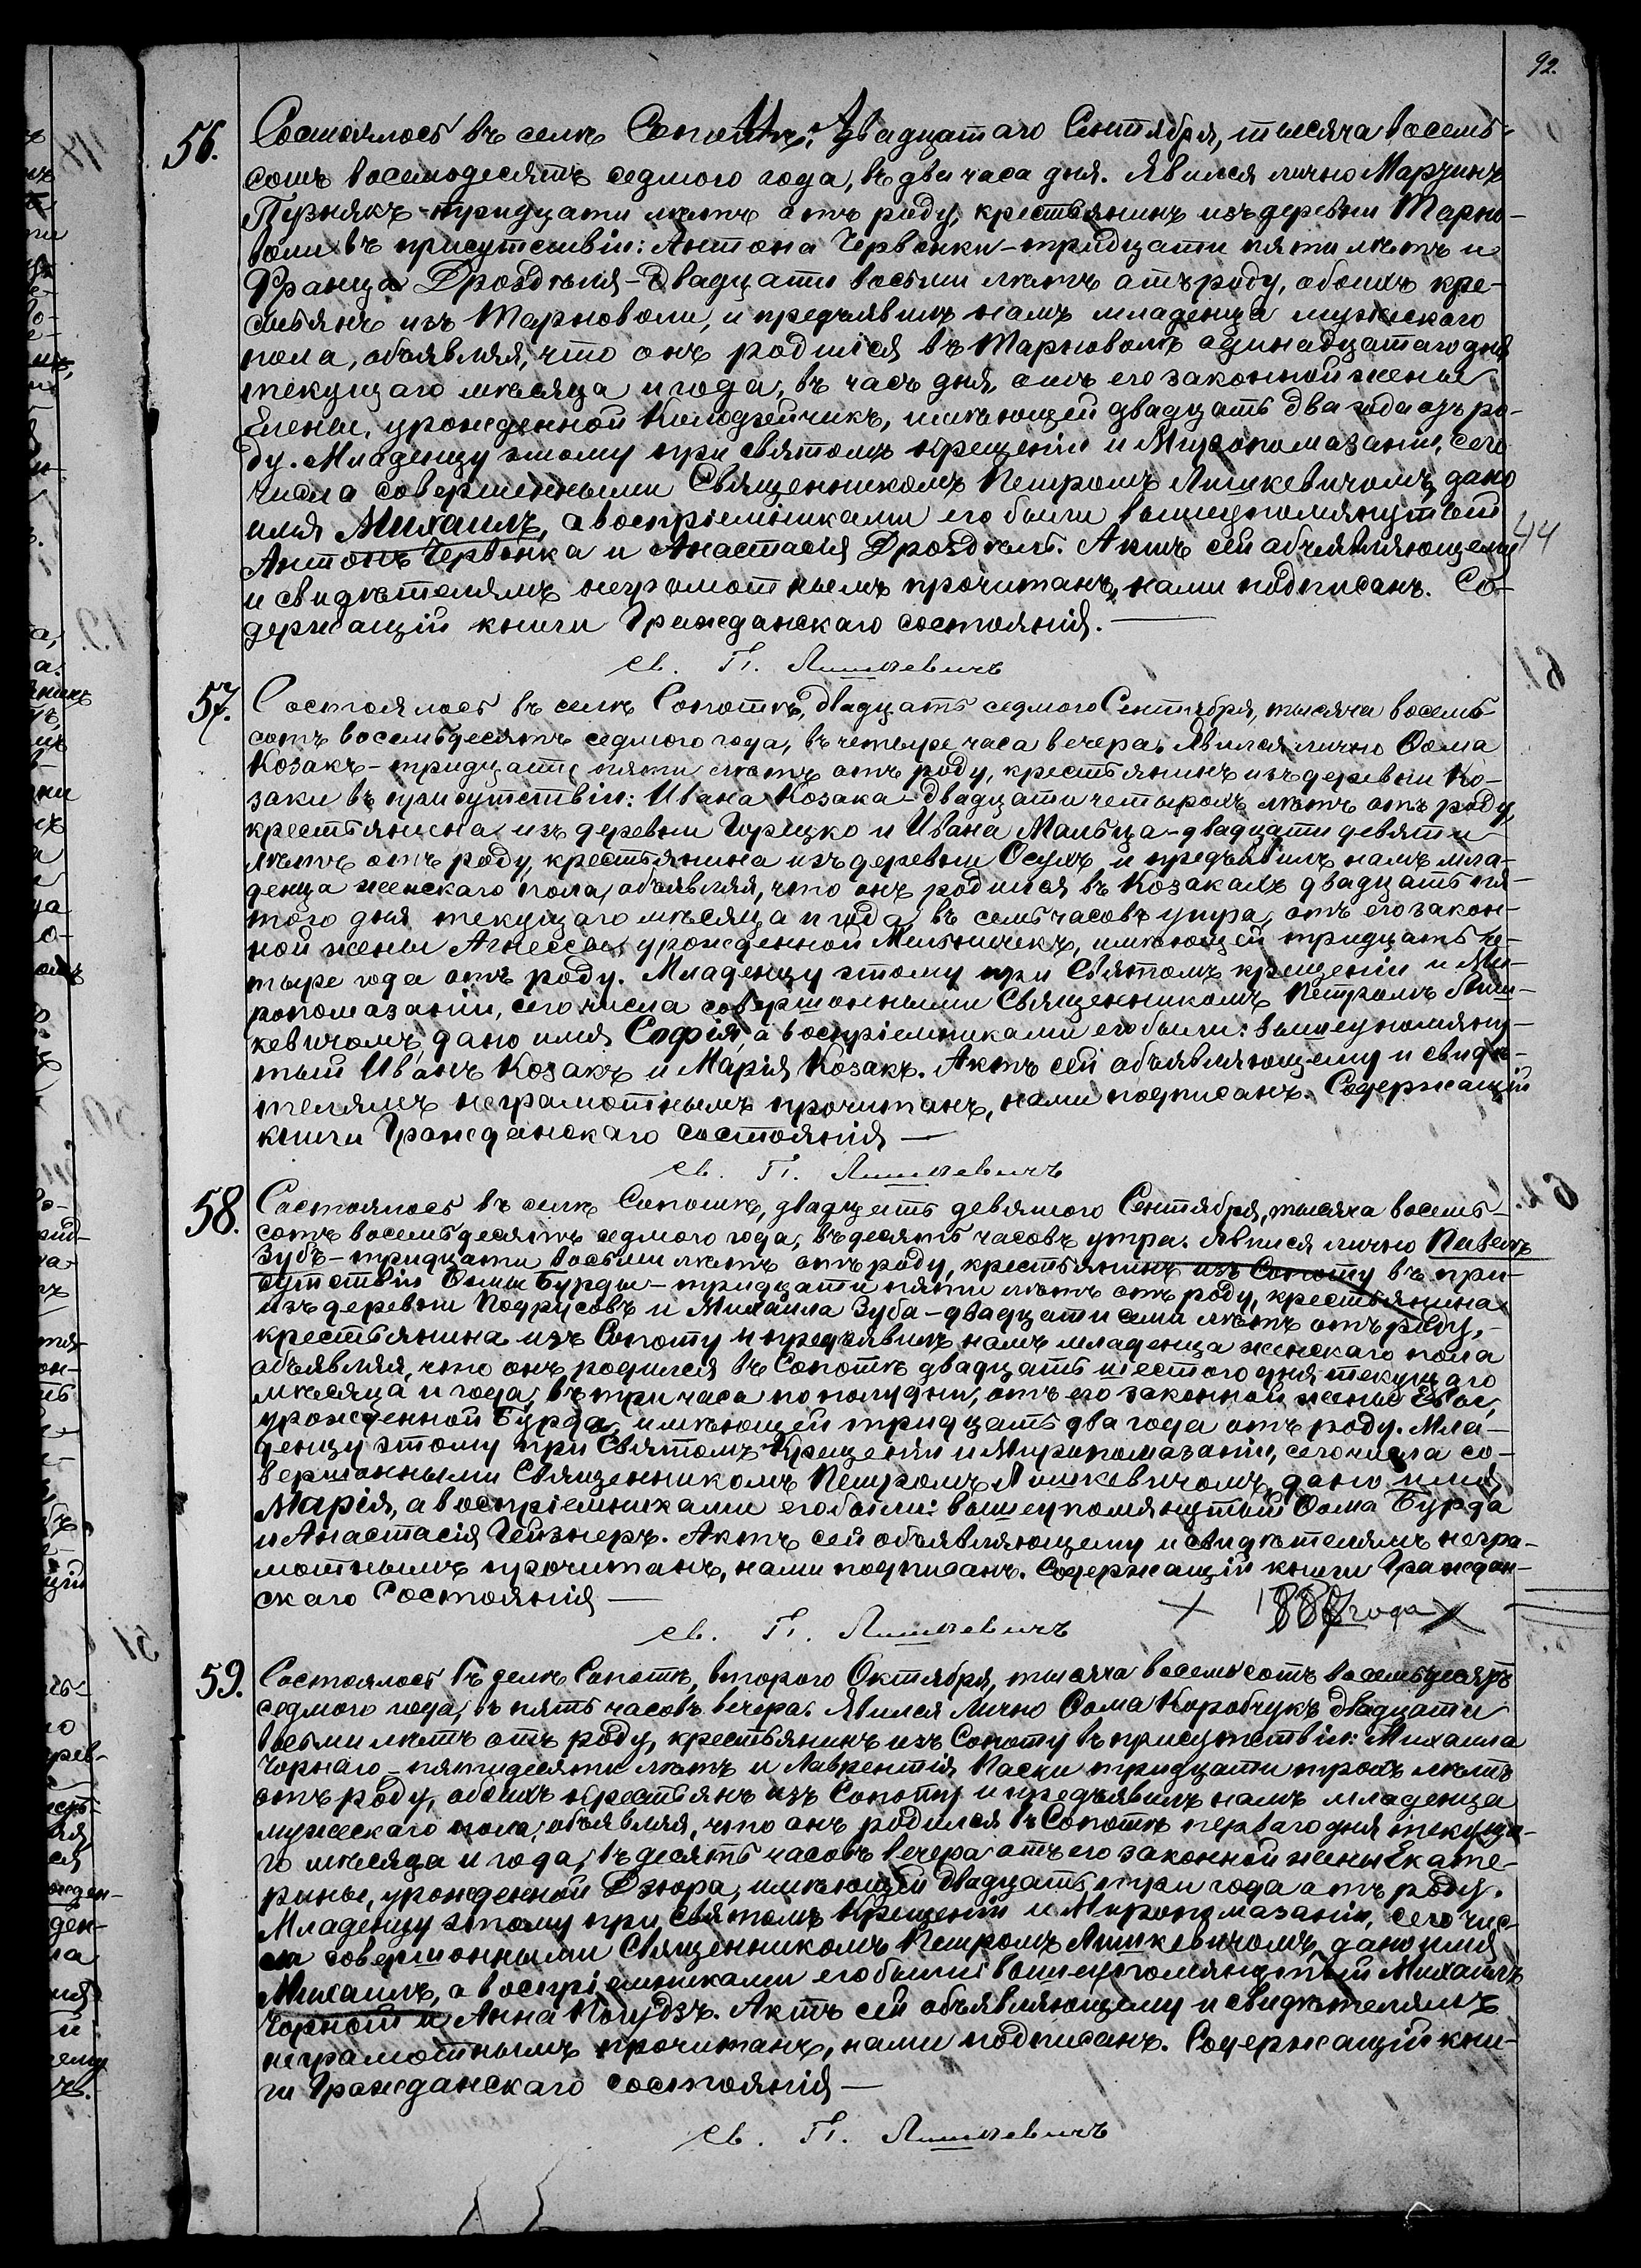 92.
56. Состоялось въ селѣ Сопотѣ, двадцатаго Сентября, тысяча восемь-
сотъ восемьдесятъ седмого года, въ два часа дня. Явился лично Марцинъ
Пузнякъ - тридцати лѣтъ отъ роду, крестьянинъ изъ деревни Тарно-
воли въ присутствіи: Антона Червонки - тридцати пяти лѣтъ и
Франца Дроздѣля - двадцати восьми лѣтъ отъ роду, обоихъ кре-
стьянъ изъ Тарноволи, и предъявилъ намъ младенца мужескаго
пола, объявляя, что онъ родился въ Тарноволѣ одинадцатаго дня
текущаго мѣсяца и года, въ часъ дня, отъ его законной жены
Елены, урожденной Колодзейчикъ, имѣющей двадцать два года отъ ро-
ду. Младенцу этому при святомъ крещеніи и Миропомазаніи, сего
числа совершенными Священникомъ Петромъ Лишкевичомъ, дано
имя Михаилъ, а воспріемниками его были вышеупомянутый
44
Антонъ Червонка и Анастасія Дроздѣль. Актъ сей объявляющему
и свидѣтелямъ неграмотнымъ прочитанъ, нами подписанъ. Со-
держащій книги Гражданскаго состоянія. —
св. П. Лишкевичъ
57. Состоялось въ селѣ Сопотѣ, двадцать седмого Сентября, тысяча восемь-
сотъ восемьдесятъ седмого года, въ четыре часа вечера. Явился лично Ѳома
Козакъ - тридцати пяти лѣтъ отъ роду, крестьянинъ изъ деревни Ко-
заки въ присутствіи: Ивана Козака - двадцати четырохъ лѣтъ отъ роду,
крестьянина изъ деревни Горецко и Ивана Мальца - двадцати девяти
лѣтъ отъ роду, крестьянина изъ деревни Осухъ и предъявилъ намъ мла-
денца женскаго пола, объявляя, что онъ родился въ Козакахъ двадцать пя-
того дня текущаго мѣсяца и года, въ семь часовъ утра, отъ его закон-
ной жены Агнессы, урожденной Мельничекъ, имѣющей тридцать че-
тыре года отъ роду. Младенцу этому при Святомъ крещеніи и Ми-
ропомазаніи, сего числа совершонными Священникомъ Петромъ Лиш-
кевичомъ, дано имя Софія, а воспріемниками его были: вышеупомяну-
тый Иванъ Козакъ и Марія Козакъ. Актъ сей объявляющему и свидѣ-
телямъ неграмотнымъ прочитанъ, нами подписанъ. Содержащій
книги Гражданскаго состоянія —
св. П. Лишкевичъ
58. Состоялось въ селѣ Сопотѣ, двадцать девятого Сентября, тысяча восемь-
сотъ восемьдесятъ седмого года, въ десять часовъ утра. Явился лично Павелъ
Зубъ - тридцати восьми лѣтъ отъ роду, крестьянинъ изъ Сопоту въ при-
сутствіи Ѳомы Бурды - тридцати пяти лѣтъ отъ роду, крестьянина
изъ деревни Подрусовъ и Михаила Зуба - двадцати семи лѣтъ отъ роду, -
крестьянина изъ Сопоту и предъявилъ намъ младенца женскаго пола
объявляя, что онъ родился въ Сопотѣ двадцать шестого дня текущаго
мѣсяца и года, въ три часа по полудни, отъ его законной жены Евы,
урожденной Бурда, имѣющей тридцать два года отъ роду. Мла-
денцу этому при Святомъ Крещеніи и Миропомазаніи, сего числа со-
вершонными Священникомъ Петромъ Лишкевичомъ, дано имя
Марія, а воспріемниками его были: вышеупомянутый Ѳома Бурда
и Анастасія Гейзнеръ. Актъ сей объявляющему и свидѣтелямъ негра-
мотнымъ прочитанъ, нами подписанъ. Содержащій книги Граждан-
скаго Состоянія —
× 1887 года ×
св. П. Лишкевичъ
59. Состоялось въ селѣ Сопотѣ, второго Октября, тысяча восемьсотъ восемьдесятъ
седмого года, въ пять часовъ вечера. Явился Лично Ѳома Коробчукъ двадцати
восьми лѣтъ отъ роду, крестьянинъ изъ Сопоту въ присутствіи: Михаила
Чорнаго - пятидесяти лѣтъ и Лаврентія Паски тридцати трохъ лѣтъ
отъ роду, обоихъ крестьянъ изъ Сопоту и предъявилъ намъ младенца
мужескаго пола, объявляя, что онъ родился въ Сопотѣ перваго дня текуща-
го мѣсяца и года, въ десять часовъ вечера отъ его законной жены Екате-
рины, урожденной Дзюра, имѣющей двадцать три года отъ роду.
Младенцу этому при Святомъ Крещеніи и Миропомазаніи, сего чис-
ла совершонными Священникомъ Петромъ Лишкевичомъ, дано имя
Михаилъ, а воспріемниками его были вышеупомянутый Михаилъ
Чорный и Анна Когудзъ. Актъ сей объявляющему и свидѣтелямъ
неграмотнымъ прочитанъ, нами подписанъ. Содержащій кни-
ги Гражданскаго состоянія —
св. П. Лишкевичъ